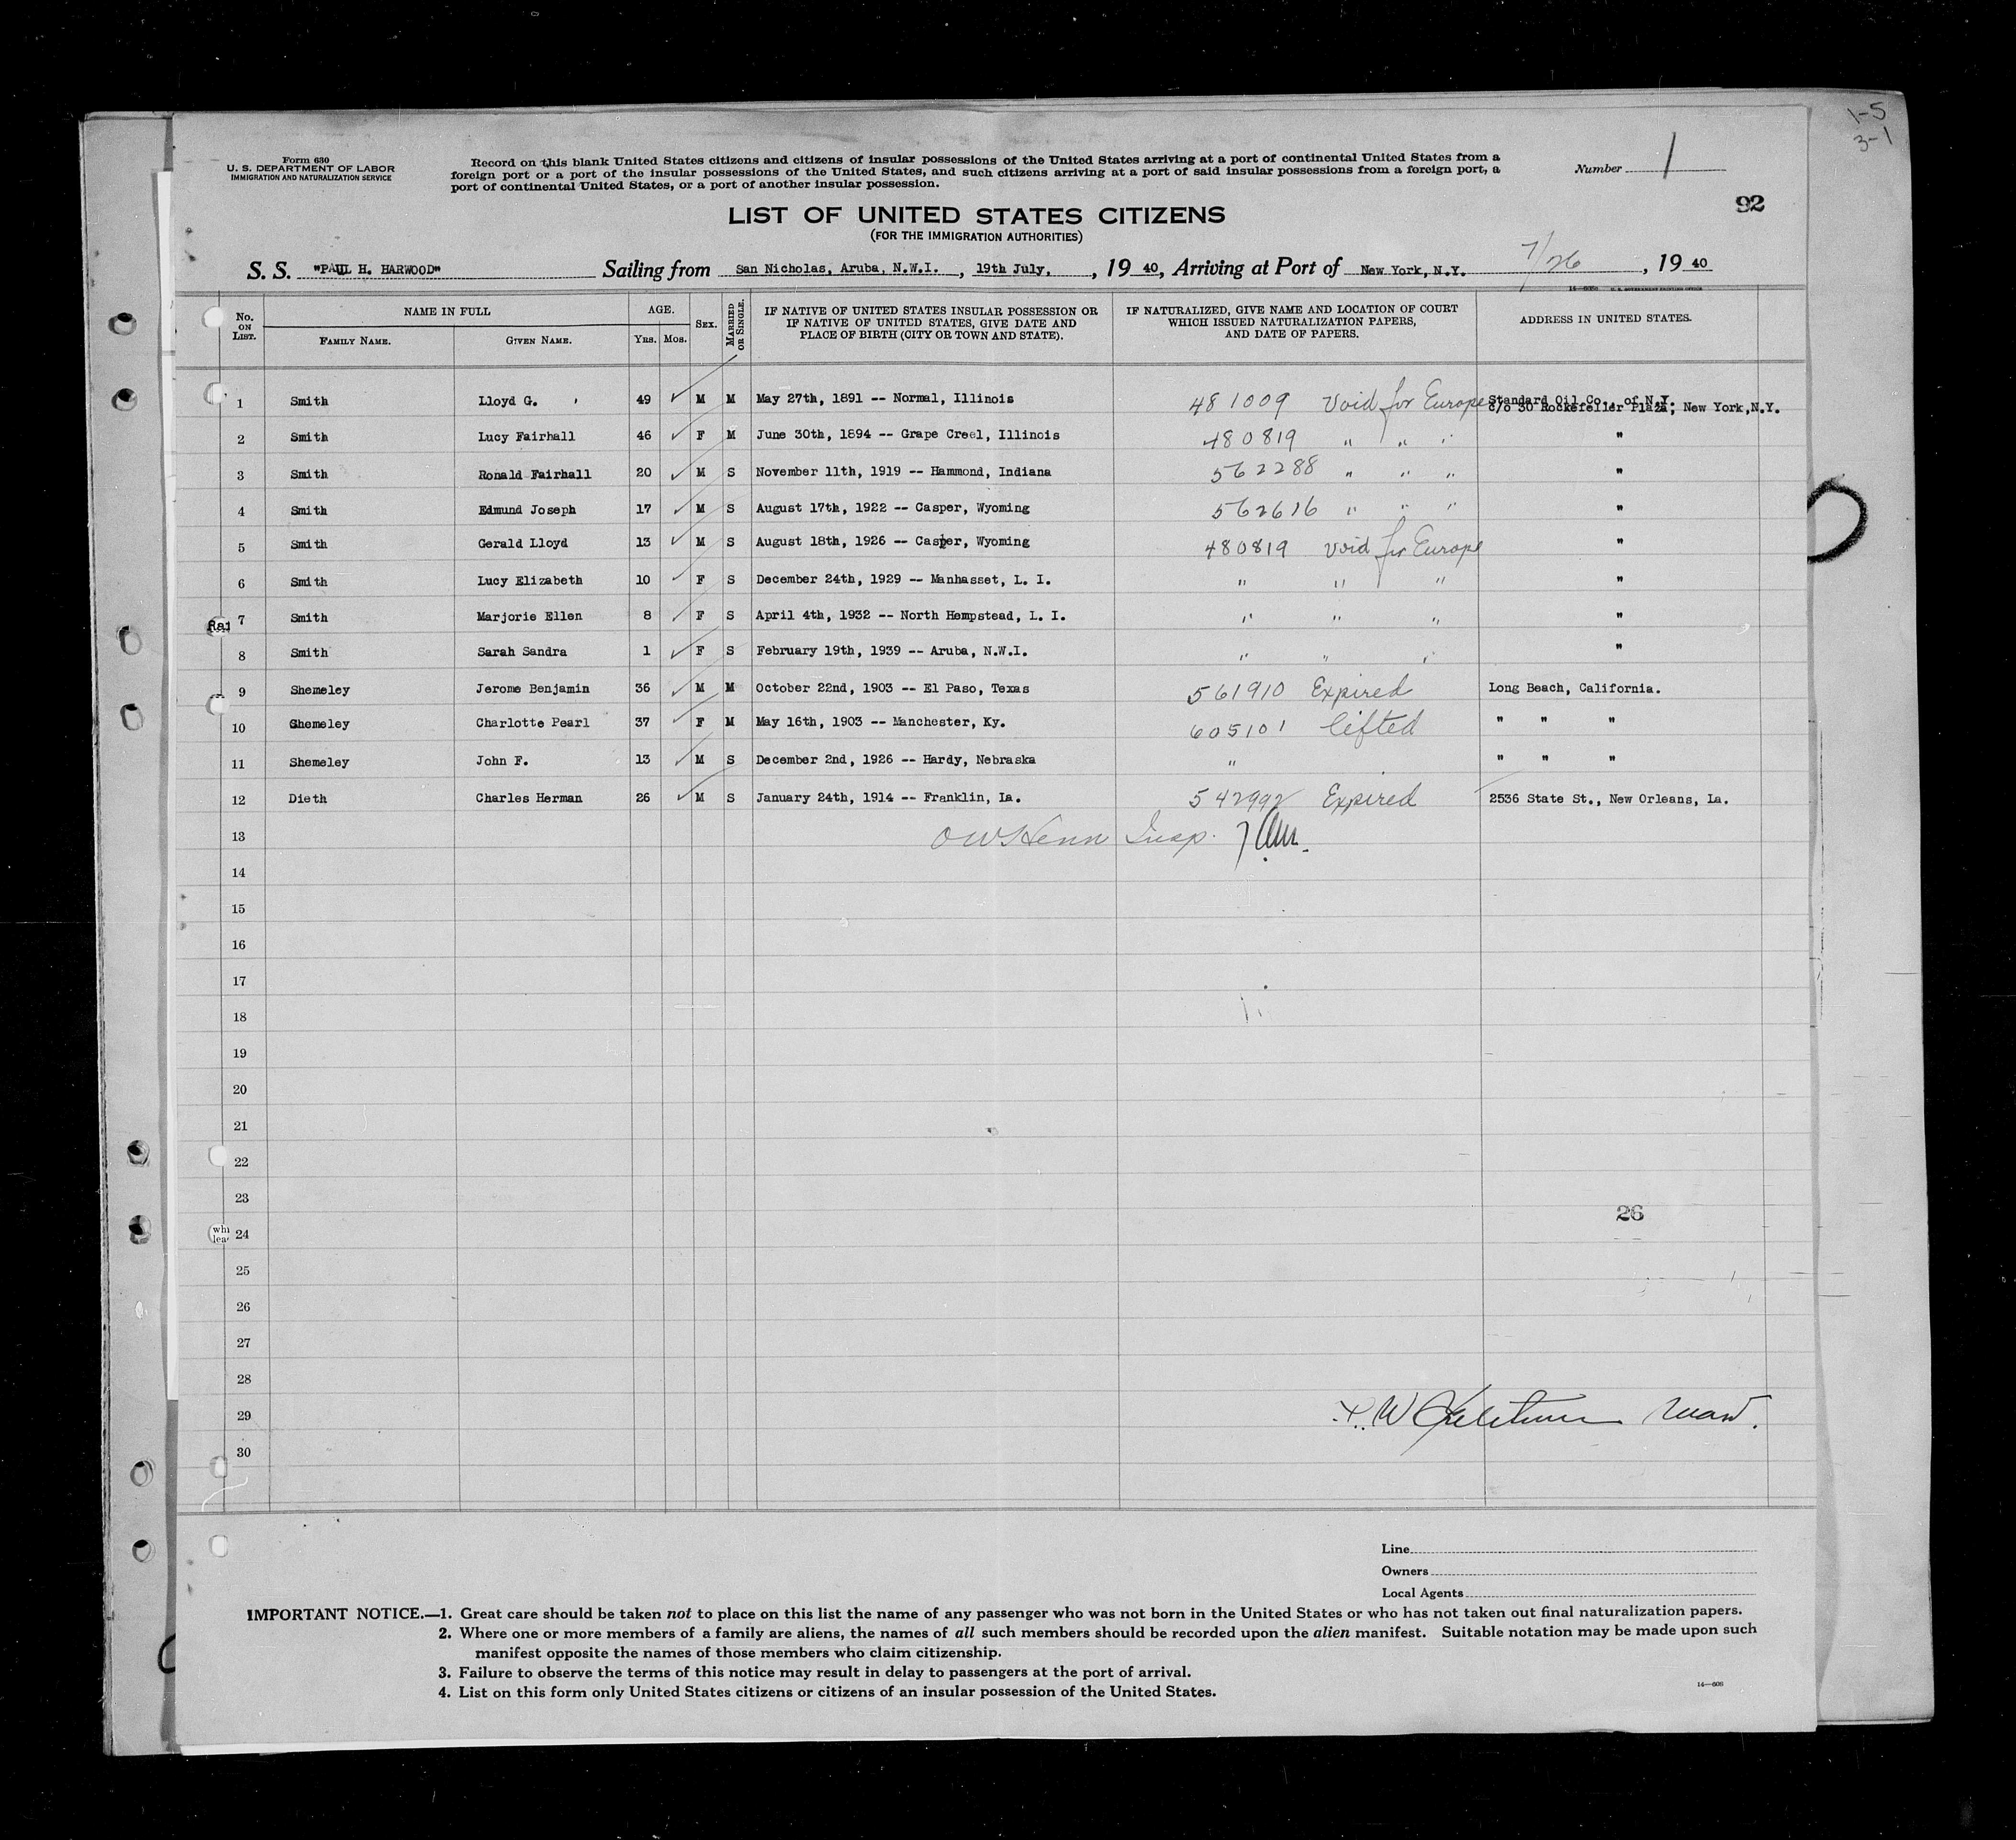 1-5
3-1
Form 630
U. S. DEPARTMENT OF LABOR
IMMIGRATION AND NATURALIZATION SERVICE
Record on this blank United States citizens and citizens of insular possessions of the United States arriving at a port of continental United States from a
foreign port or a port of the insular possessions of the United States, and such citizens arriving at a port of said insular possessions from a foreign port, a
port of continental United States, or a port of another insular possession.
Number 1
92
LIST OF UNITED STATES CITIZENS
(FOR THE IMMIGRATION AUTHORITIES)
S. S. "PAUL H. HARWOOD" Sailing from San Nicholas, Aruba, N.W.I. , 19th July, , 19 40, Arriving at Port of New York, N.Y. 7/26 , 19 40
No. ON LIST. NAME IN FULL FAMILY NAME. GIVEN NAME. AGE. YRS. MOS. SEX. MARRIED OR SINGLE. IF NATIVE OF UNITED STATES INSULAR POSSESSION OR IF NATIVE OF UNITED STATES, GIVE DATE AND PLACE OF BIRTH (CITY OR TOWN AND STATE). IF NATURALIZED, GIVE NAME AND LOCATION OF COURT WHICH ISSUED NATURALIZATION PAPERS, AND DATE OF PAPERS. ADDRESS IN UNITED STATES.
1 Smith Lloyd G. 49 M M May 27th, 1891 -- Normal, Illinois 481009 Void for Europe Standard Oil Co., of N.Y.
c/o 30 Rockefeller Plaza, New York, N.Y.
2 Smith Lucy Fairhall 46 F M June 30th, 1894 -- Grape Creel, Illinois 480819 " " " "
3 Smith Ronald Fairhall 20 M S November 11th, 1919 -- Hammond, Indiana 562288 " " " "
4 Smith Edmund Joseph 17 M S August 17th, 1922 -- Casper, Wyoming 562616 " " " "
5 Smith Gerald Lloyd 13 M S August 18th, 1926 -- Casper, Wyoming 480819 Void for Europe "
6 Smith Lucy Elizabeth 10 F S December 24th, 1929 -- Manhasset, L. I. " " " "
7 Smith Marjorie Ellen 8 F S April 4th, 1932 -- North Hempstead, L. I. " " " "
8 Smith Sarah Sandra 1 F S February 19th, 1939 -- Aruba, N.W.I. " " " "
9 Shemeley Jerome Benjamin 36 M M October 22nd, 1903 -- El Paso, Texas 561910 Expired Long Beach, California.
10 Shemeley Charlotte Pearl 37 F M May 16th, 1903 -- Manchester, Ky. 605101 lifted " " "
11 Shemeley John F. 13 M S December 2nd, 1926 -- Hardy, Nebraska " " " "
12 Dieth Charles Herman 26 M S January 24th, 1914 -- Franklin, La. 542992 Expired 2536 State St., New Orleans, La.
13 OW Henn Insp.
14
15
16
17
18
19
20
21
22
23
26
24
25
26
27
28
29
30
Line
Owners
Local Agents
IMPORTANT NOTICE.—1. Great care should be taken not to place on this list the name of any passenger who was not born in the United States or who has not taken out final naturalization papers.
2. Where one or more members of a family are aliens, the names of all such members should be recorded upon the alien manifest. Suitable notation may be made upon such
manifest opposite the names of those members who claim citizenship.
3. Failure to observe the terms of this notice may result in delay to passengers at the port of arrival.
4. List on this form only United States citizens or citizens of an insular possession of the United States.
14—608